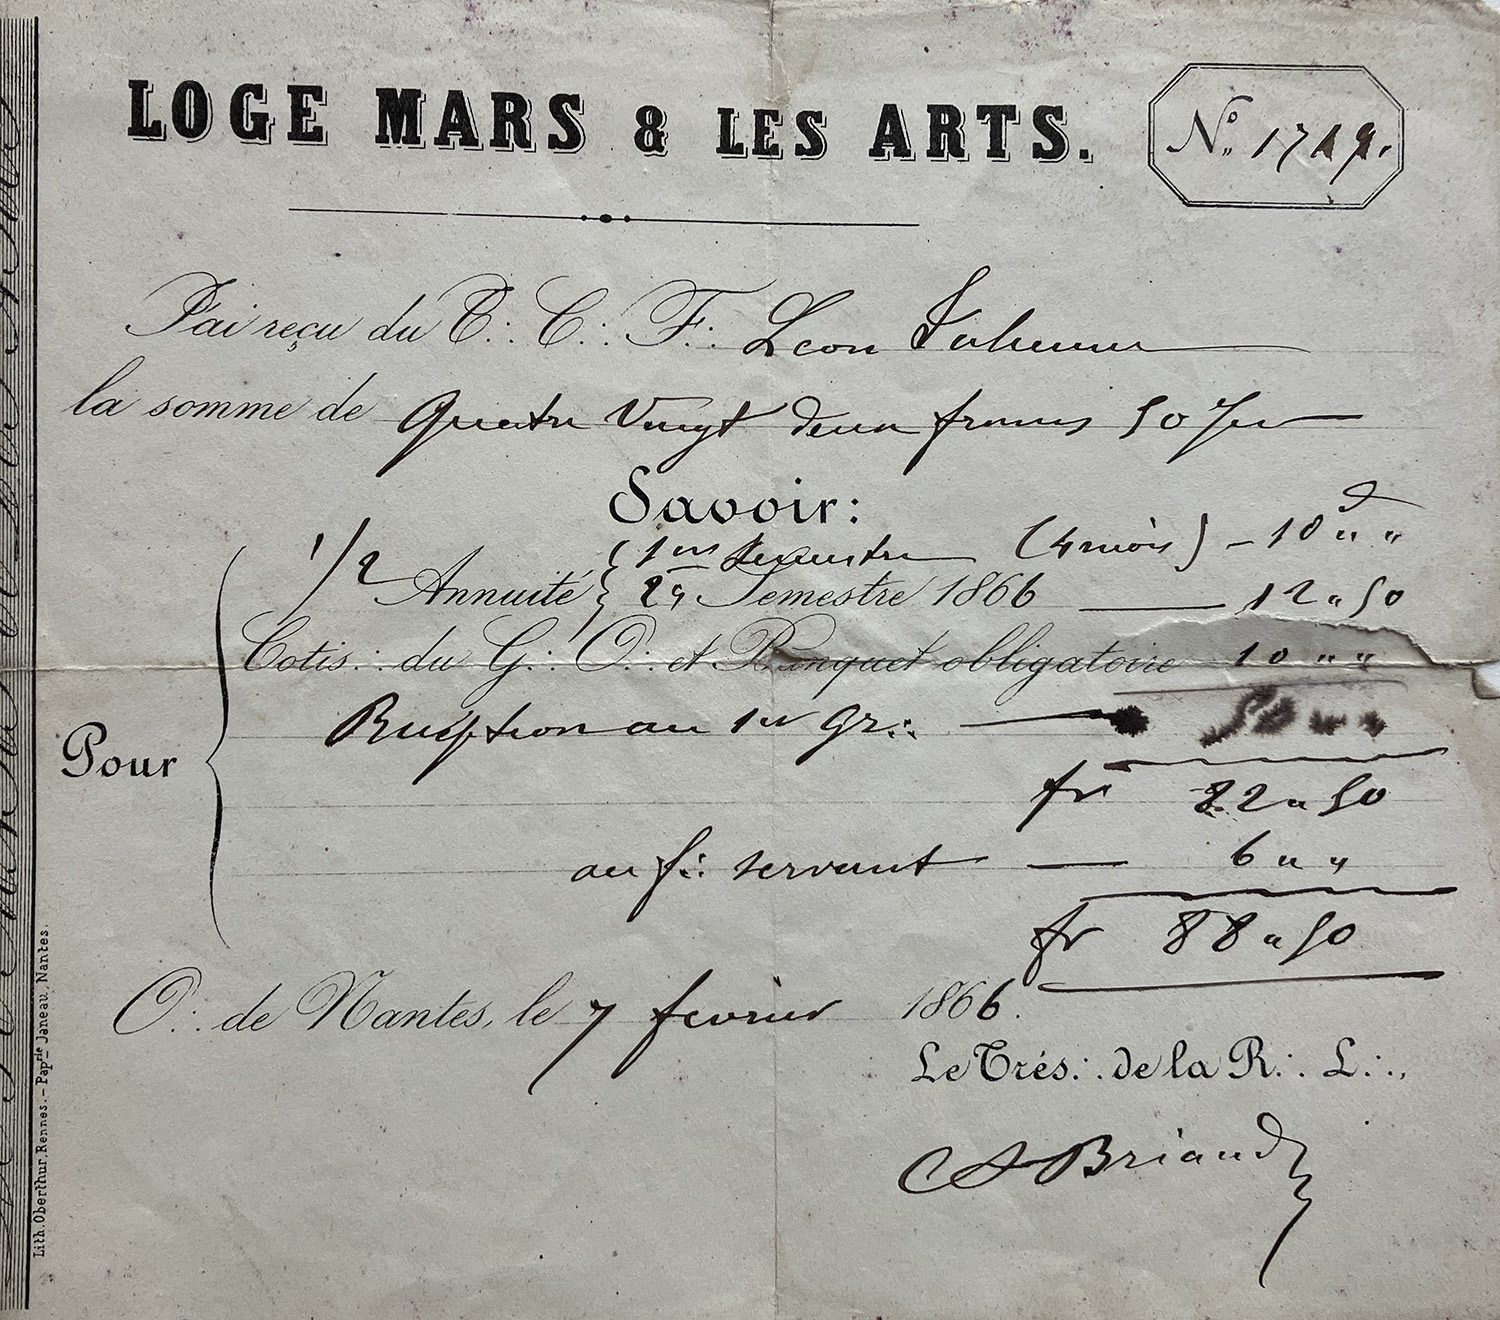 LOGE MARS & LES ARTS.
N° 1719.
J'ai reçu du T∴ C∴ F∴ Léon
la somme de Quatre Vingt deux francs 50
Savoir:
1/2 Annuité { 1er Semestre (4 mois) — 10 " "
2e Semestre 1866 — 12 " 50
Cotis∴ du G∴ O∴ et Banquet obligatoire 10 " "
Pour
Réception au 1er gr∴ — 50 " "
fr 82 " 50
au f∴ servant — 6 " "
fr 88 " 50
O∴ de Nantes, le 7 février 1866.
Le Trés∴ de la R∴ L∴,
Briand
Lith. Oberthur, Rennes. – Paprie Janeau, Nantes.